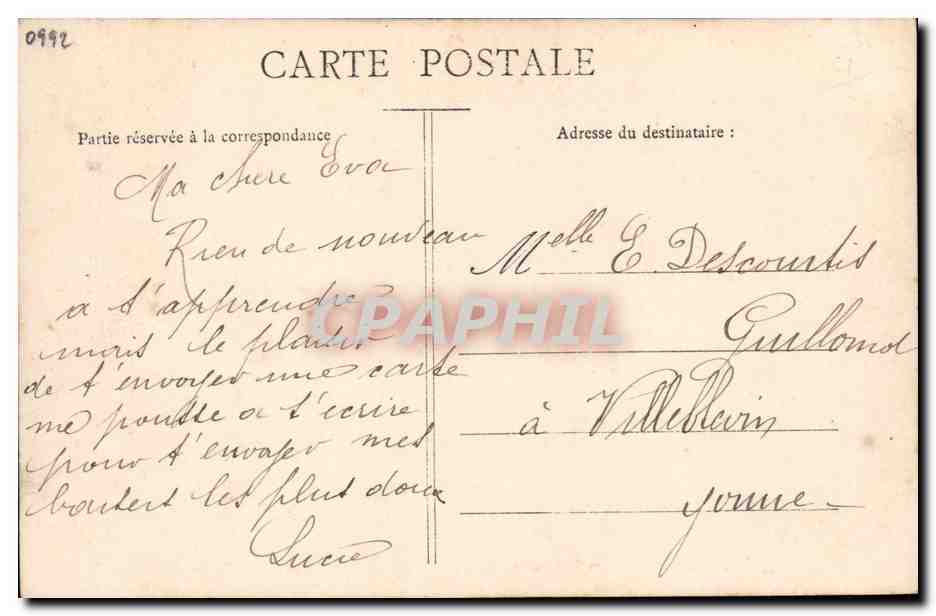 0992
CARTE POSTALE
Partie réservée à la correspondance
Ma chere Eva
Rien de nouveau
a t'apprendre
mais le plaisir
de t'envoyer une carte
me pousse a t'ecrire
pour t'envoyer mes
baisers les plus doux
Lucie
Adresse du destinataire :
Melle E. Descourtis
Guillomot
à Villeblevin
Yonne
CPAPHIL